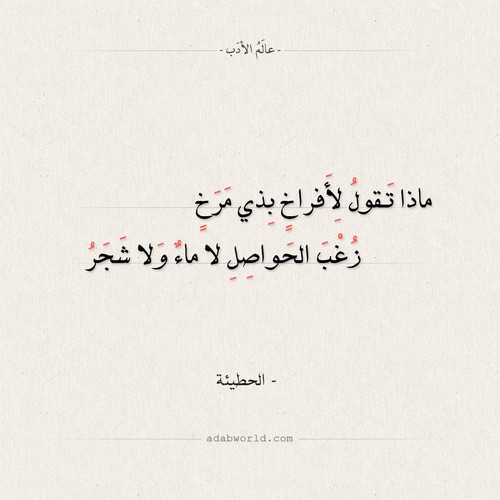 - عالَمُ الأدَب -
ماذا تَقولُ لِأَفراخٍ بِذي مَرَخٍ
زُغْبَ الحَواصِلِ لا ماءٌ وَلا شَجَرُ
- الحطيئة
adabworld.com